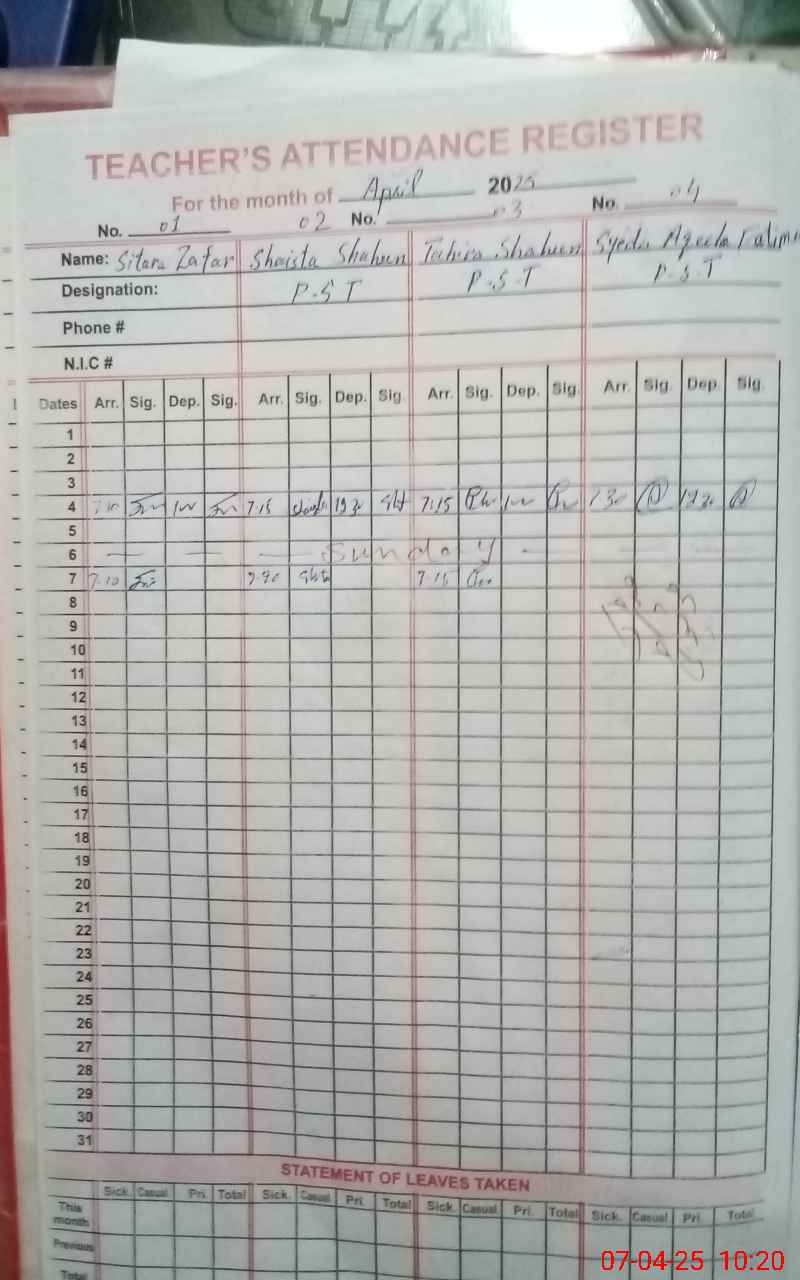 TEACHER'S ATTENDANCE REGISTER
For the month of April 2025
No. 01 02 No. 03 No. 04
Name: Sitara Zafar Shaista Shaheen Tahira Shaheen Syeda Aqeela Fatima
Designation: P.S.T P.S.T P.S.T
Phone #
N.I.C #
Dates Arr. Sig. Dep. Sig. Arr. Sig. Dep. Sig. Arr. Sig. Dep. Sig. Arr. Sig. Dep. Sig.
1
2
3
4 7:15 7:15
5
6 Sunday
7 7:10 7:15
8
9
10
11
12
13
14
15
16
17
18
19
20
21
22
23
24
25
26
27
28
29
30
31
STATEMENT OF LEAVES TAKEN
Sick. Casual Pri. Total Sick. Casual Pri. Total Sick. Casual Pri. Total Sick. Casual Pri. Total
This month
Previous
Total
07-04-25 10:20